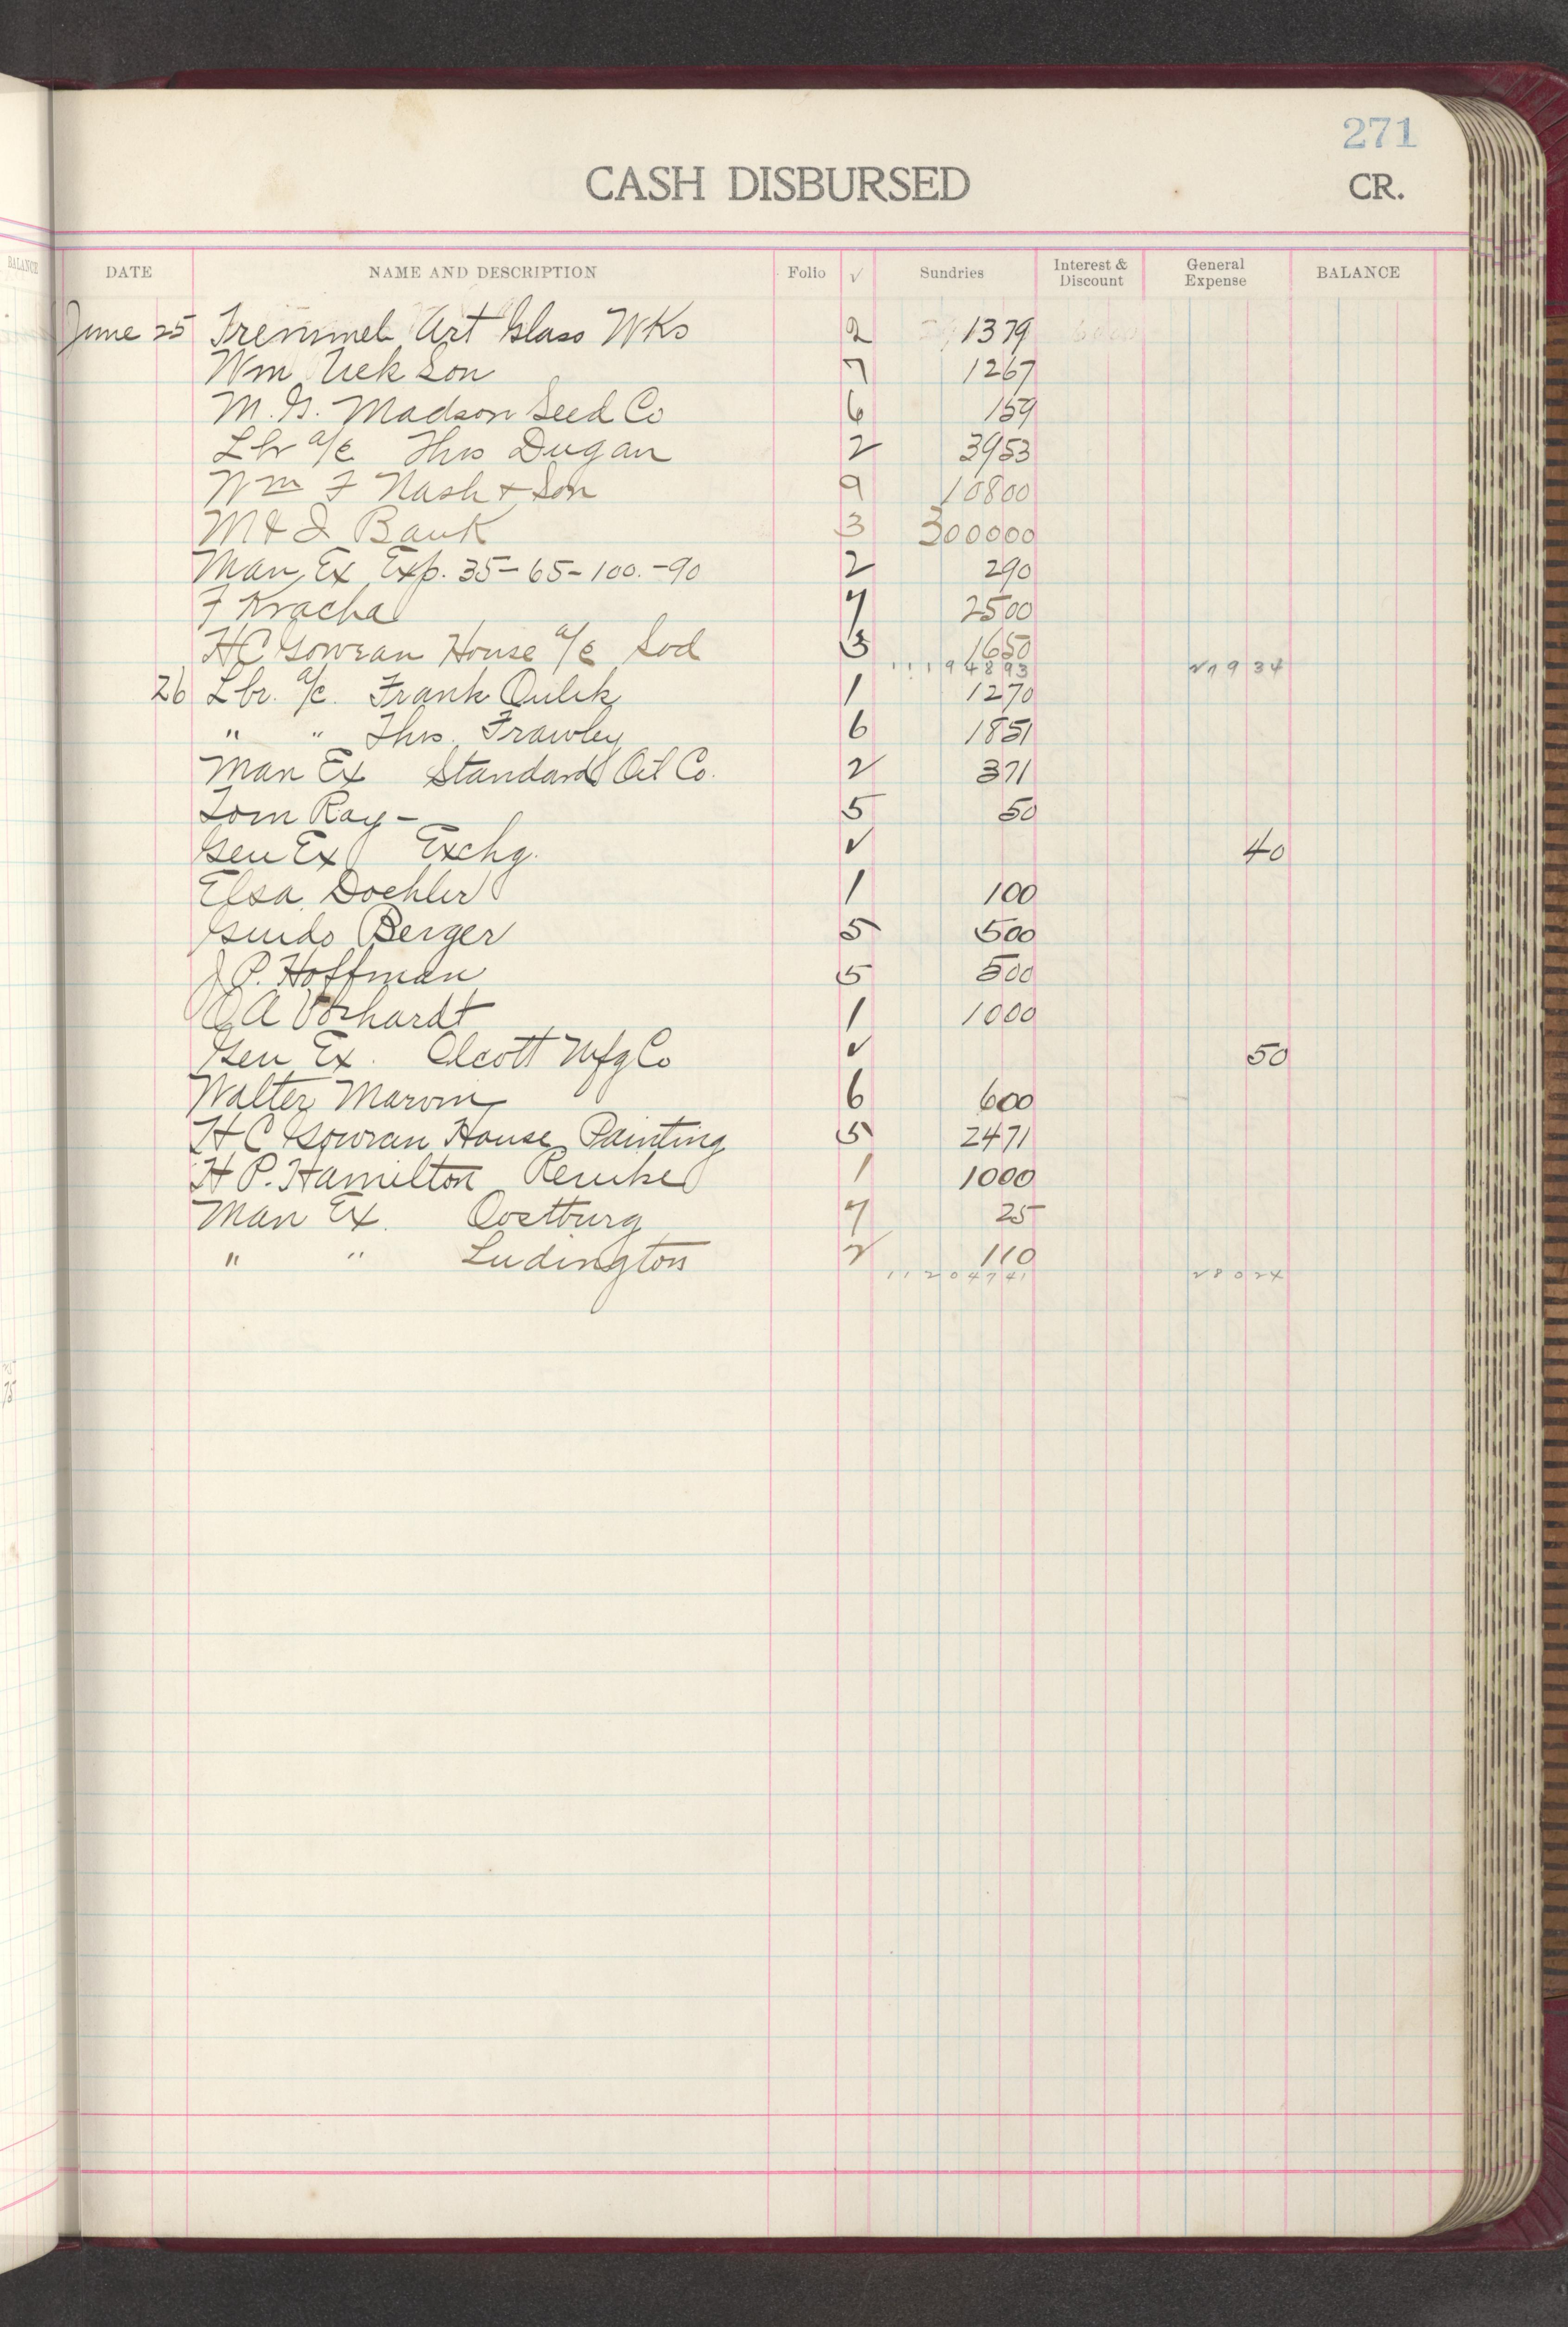 271
CASH DISBURSED
CR.
BALANCE
DATE NAME AND DESCRIPTION Folio ✓ Sundries Interest & Discount General Expense BALANCE
June 25 Tremmel Art Glass Wks 2 1379
Wm Uek Son 7 1267
M. G. Madson Seed Co 6 159
Lbr a/c Thos Dugan 2 3953
Wm F Nash & Son 9 10800
M & I Bank 3 300000
Man Ex Exp. 35-65-100.-90 2 290
F Kracha 7 2500
HC Gowran House a/c Sod 5 1650
11194893 27934
26 Lbr. a/c. Frank Oulik 1 1270
" " Thos. Frawley 6 1851
Man Ex Standard Oil Co. 2 371
Tom Ray - 5 50
Gen Ex Exchg. ✓ 40
Elsa Doehler 1 100
Guido Berger 5 500
J P. Hoffman 5 500
A 1 1000
Gen Ex. Olcott Mfg Co ✓ 50
Walter Marvin 6 600
H C Gowran House Painting 5 2471
H P. Hamilton 1 1000
Man Ex. Oostburg 7 25
" " Ludington 2 110
11204741 28024